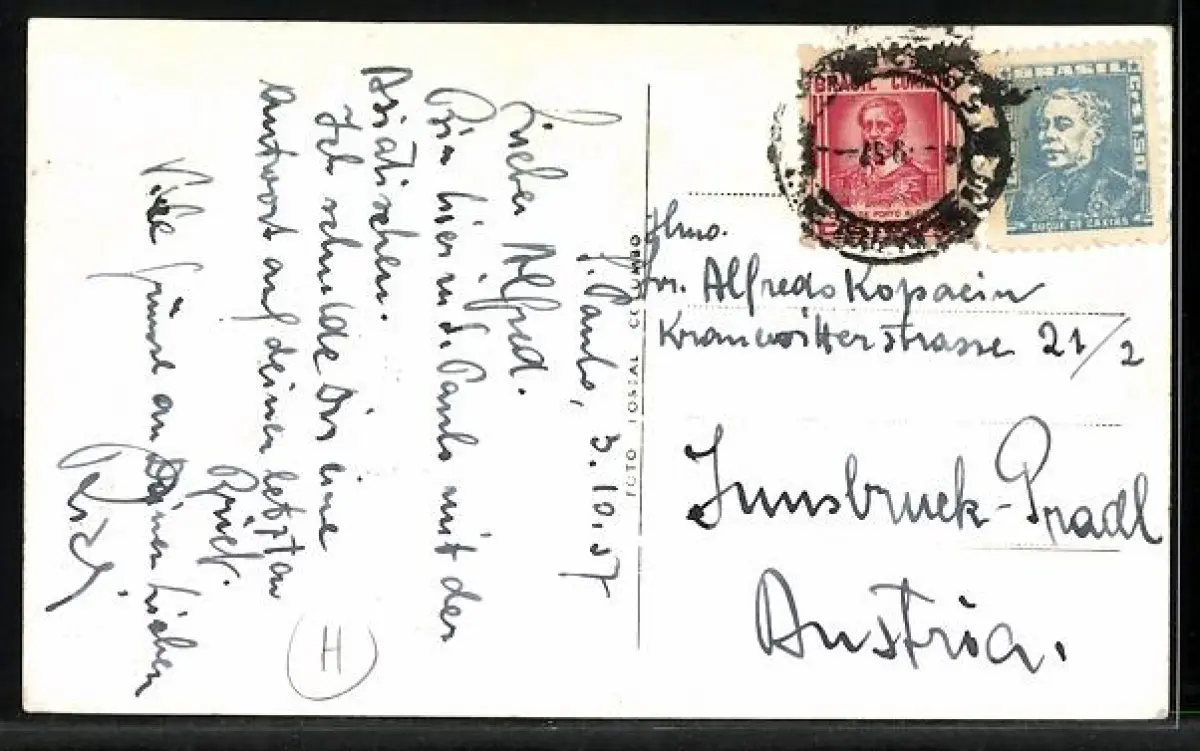 S. Paulo, 3.10.57
Lieber Alfred.
Bin hier in S. Paulo mit der
Asiatischen.
Ich schulde Dir eine
Antwort auf deinen letzten
Brief.
Viele Grüsse an Deinen Lieben
H
FOTO POSTAL COLOMBO
BRASIL CORREIO
57
BRASIL
DUQUE DE CAXIAS
Ilmo.
Sr. Alfredo Kopacin
Kranewitterstrasse 21/2
Innsbruck-Pradl
Austria.